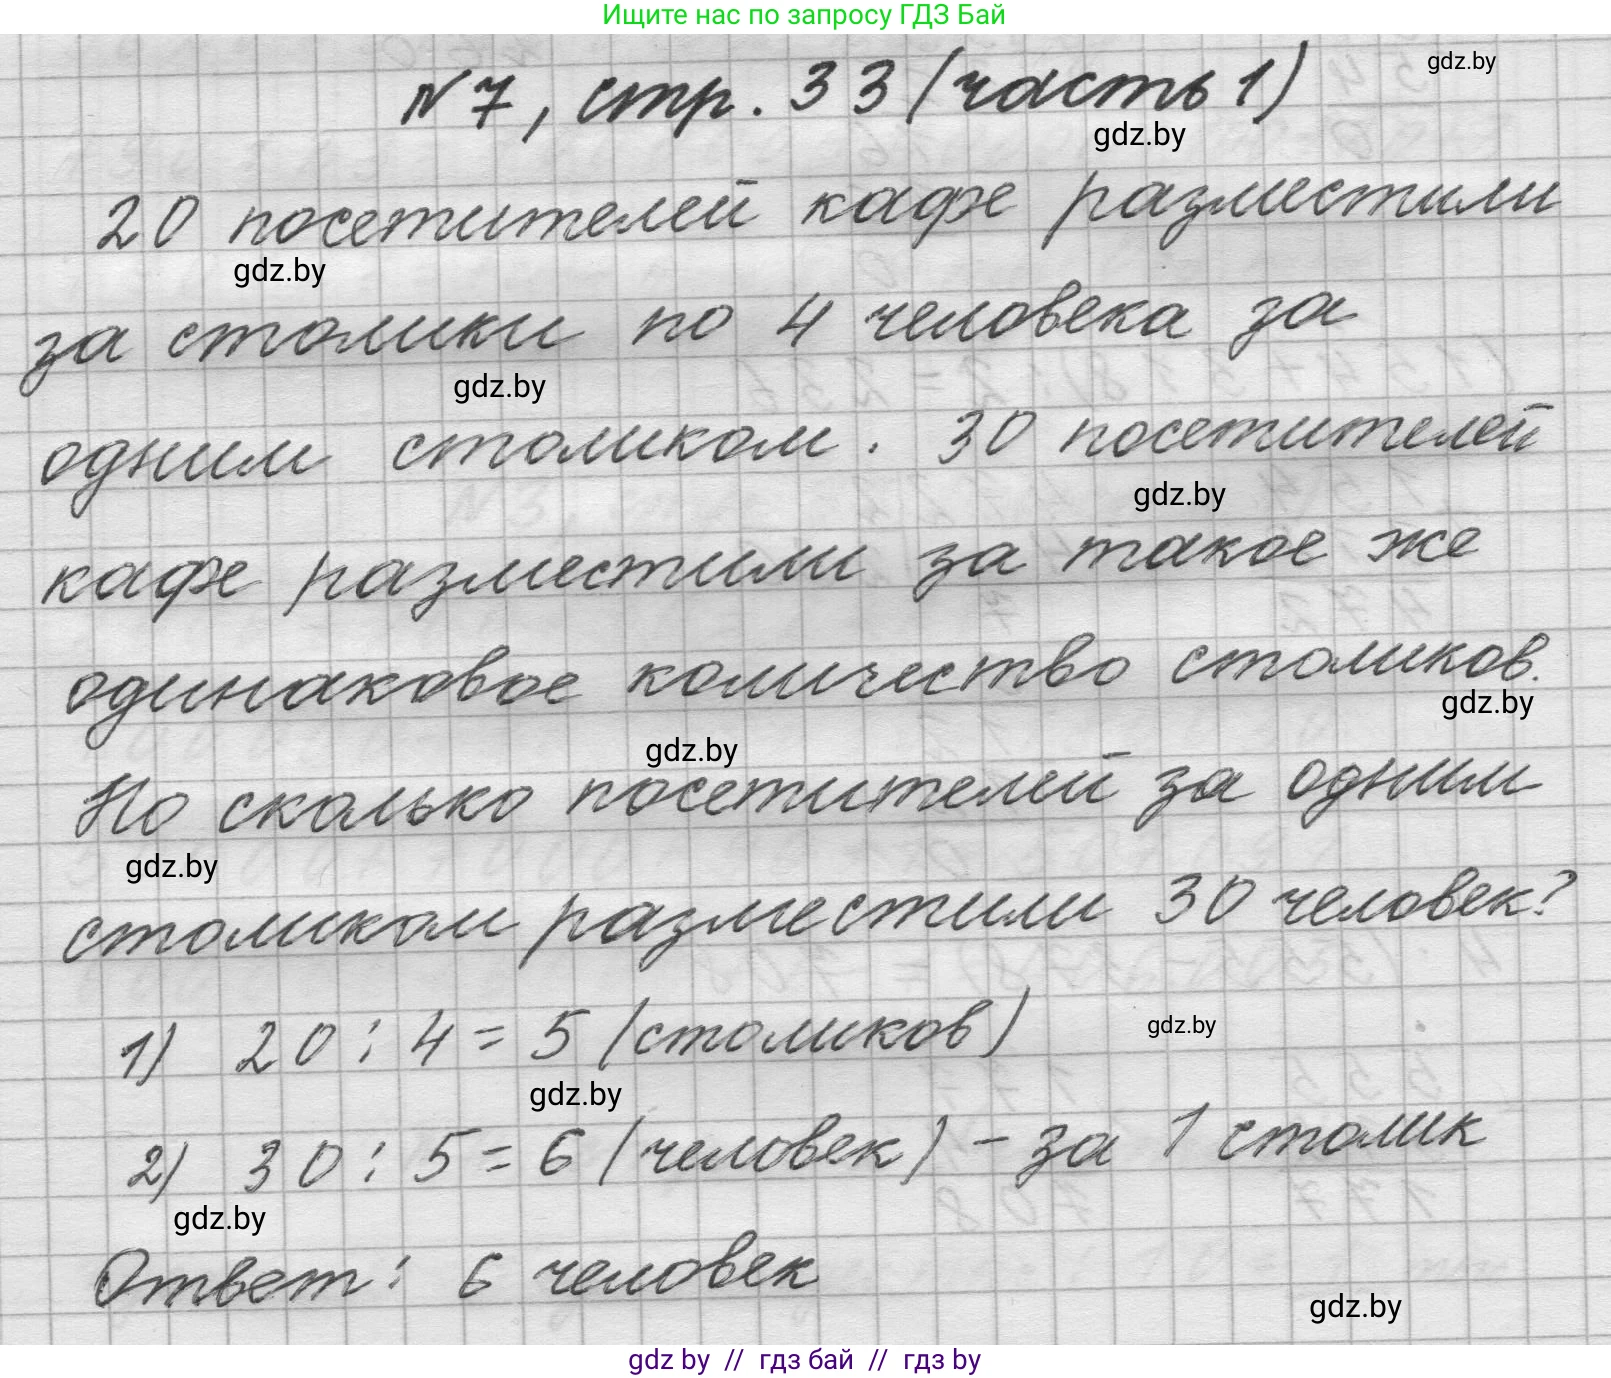 Ищите нас по запросу ГДЗ Бай
gdz.by
№7, стр. 33 (часть 1)
gdz.by
20 посетителей кафе разместили
gdz.by
за столики по 4 человека за
gdz.by
одним столиком. 30 посетителей
gdz.by
кафе разместили за такое же
одинаковое количество столиков.
gdz.by
gdz.by
По сколько посетителей за одним
gdz.by
столиком разместили 30 человек?
1) 20 : 4 = 5 (столиков)
gdz.by
gdz.by
2) 30 : 5 = 6 (человек) - за 1 столик
gdz.by
Ответ: 6 человек
gdz.by
gdz by // гдз бай // гдз by